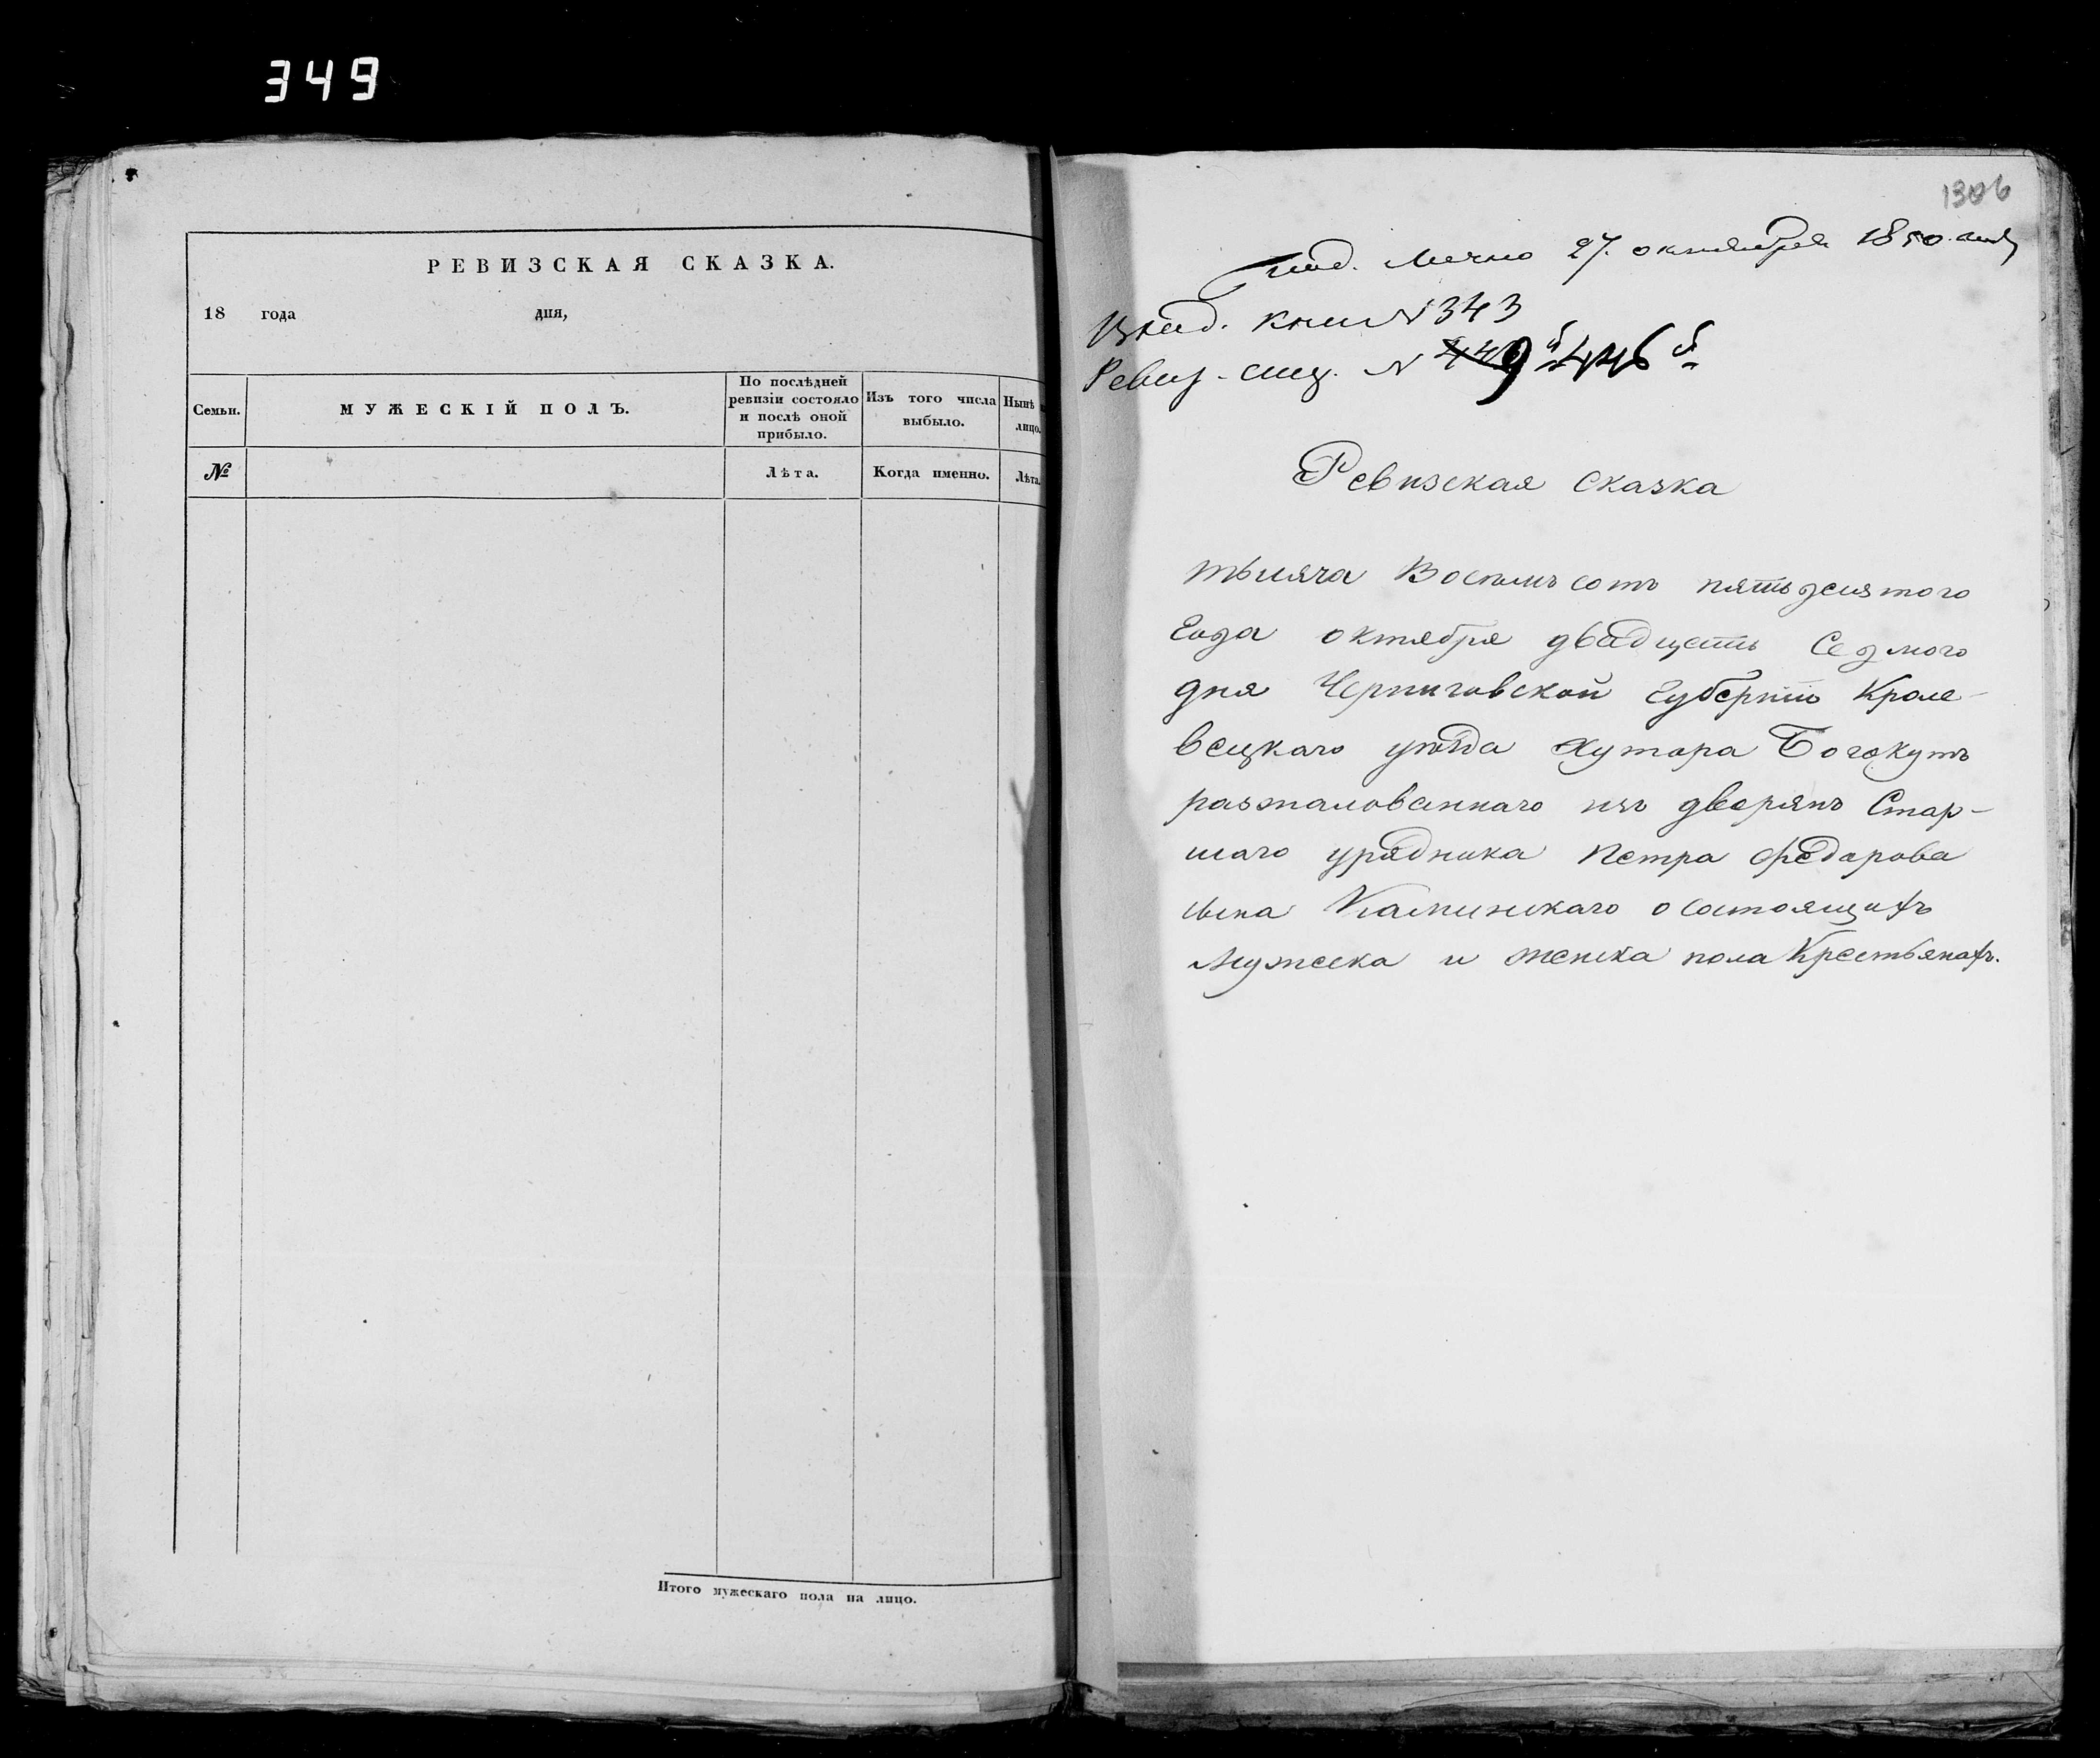 349
РЕВИЗСКАЯ СКАЗКА.
18 года дня,
Семьи.
МУЖЕСКІЙ ПОЛЪ.
По послѣдней ревизіи состояло и послѣ оной прибыло.
Изъ того числа выбыло.
Нынѣ лицо.
№
Лѣта.
Когда именно.
Лѣта.
Итого мужескаго пола на лицо.
1306
Лично 27. октября 1850.
книг N 343
Ревиз. N 9 й 446 й
Ревизская сказка
тысяча Восемъ сотъ пятьдесятого
Года октября двадцеть Седмого
дня Черниговской Губерніи Кроле-
вецкаго уѣзда Хутора Богокутъ
разжалованнаго изъ дворянъ Стар-
шаго урядника Петра Федорова
сына Каминскаго о состоящихъ
Мужеска и женска пола Крестьянахъ.